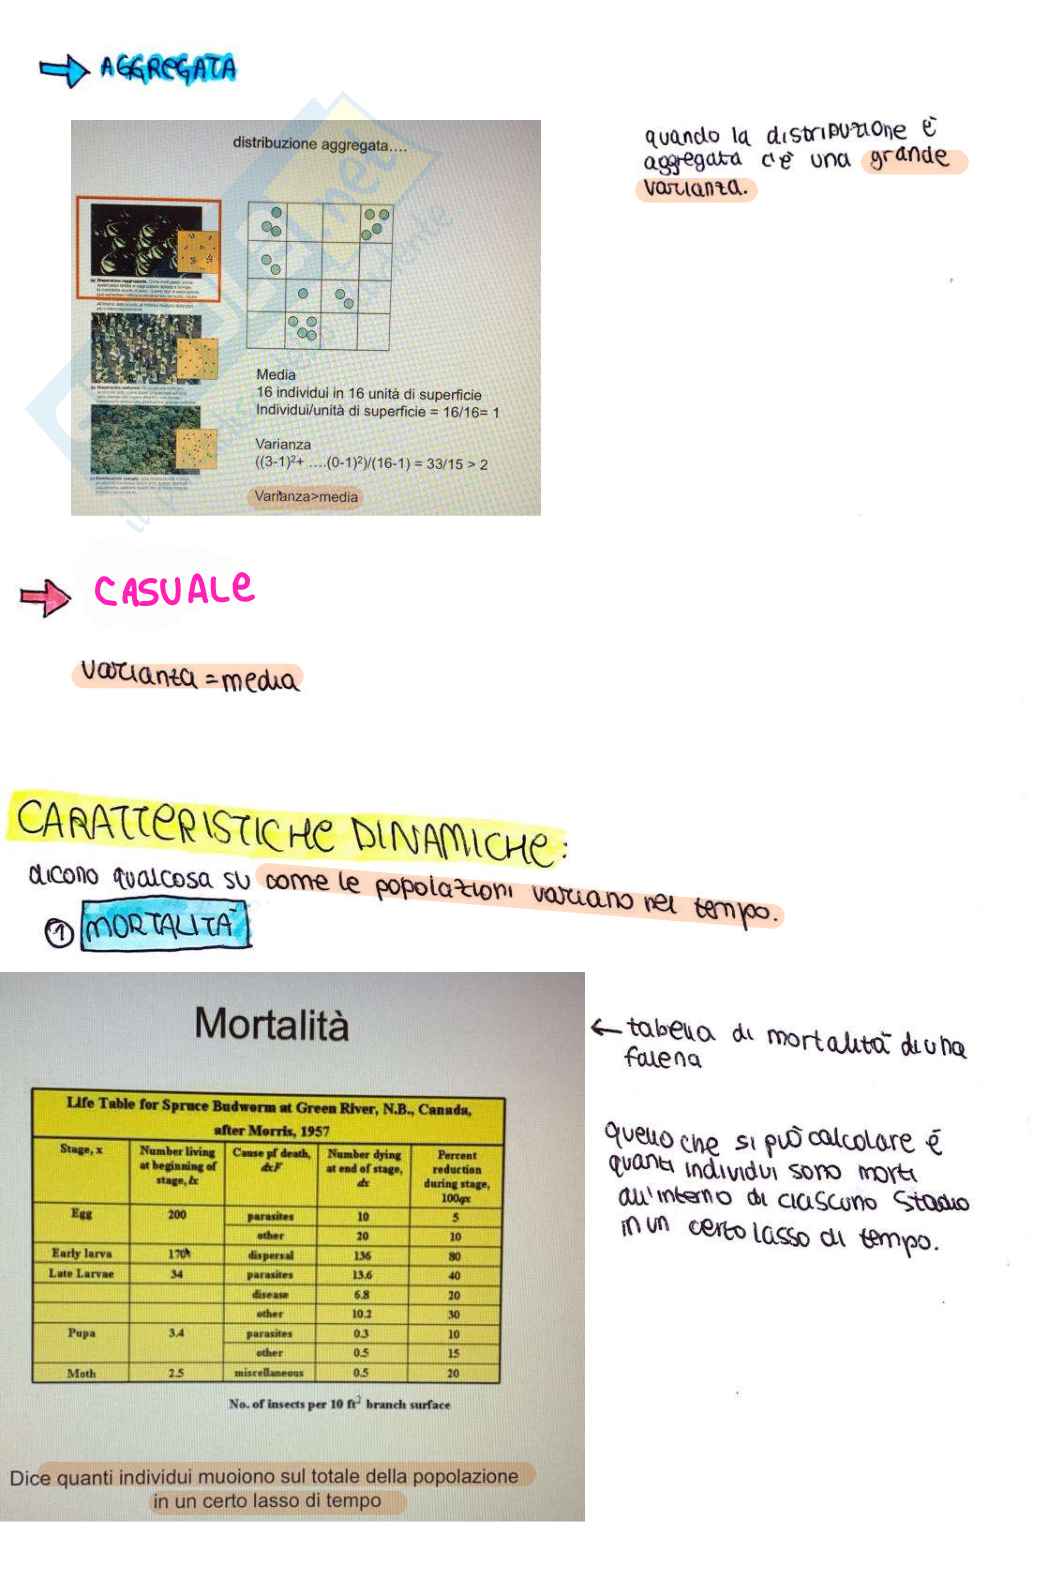 AGGREGATA
distribuzione aggregata....
quando la distribuzione è
aggregata c'è una grande
varianza.
Media
16 individui in 16 unità di superficie
Individui/unità di superficie = 16/16= 1
Varianza
((3-1)²+ ....(0-1)²)/(16-1) = 33/15 > 2
Varianza>media
CASUALE
varianza = media
CARATTERISTICHE DINAMICHE:
dicono qualcosa su come le popolazioni variano nel tempo.
① MORTALITÀ
Mortalità
← tabella di mortalità di una
falena
Life Table for Spruce Budworm at Green River, N.B., Canada,
after Morris, 1957
Stage, x Number living at beginning of stage, lx Cause pf death, dxF Number dying at end of stage, dx Percent reduction during stage, 100qx
Egg 200 parasites 10 5
other 20 10
Early larva 170 dispersal 136 80
Late Larvae 34 parasites 13.6 40
disease 6.8 20
other 10.2 30
Pupa 3.4 parasites 0.3 10
other 0.5 15
Moth 2.5 miscellaneous 0.5 20
No. of insects per 10 ft² branch surface
quello che si può calcolare è
quanti individui sono morti
all'interno di ciascuno stadio
in un certo lasso di tempo.
Dice quanti individui muoiono sul totale della popolazione
in un certo lasso di tempo